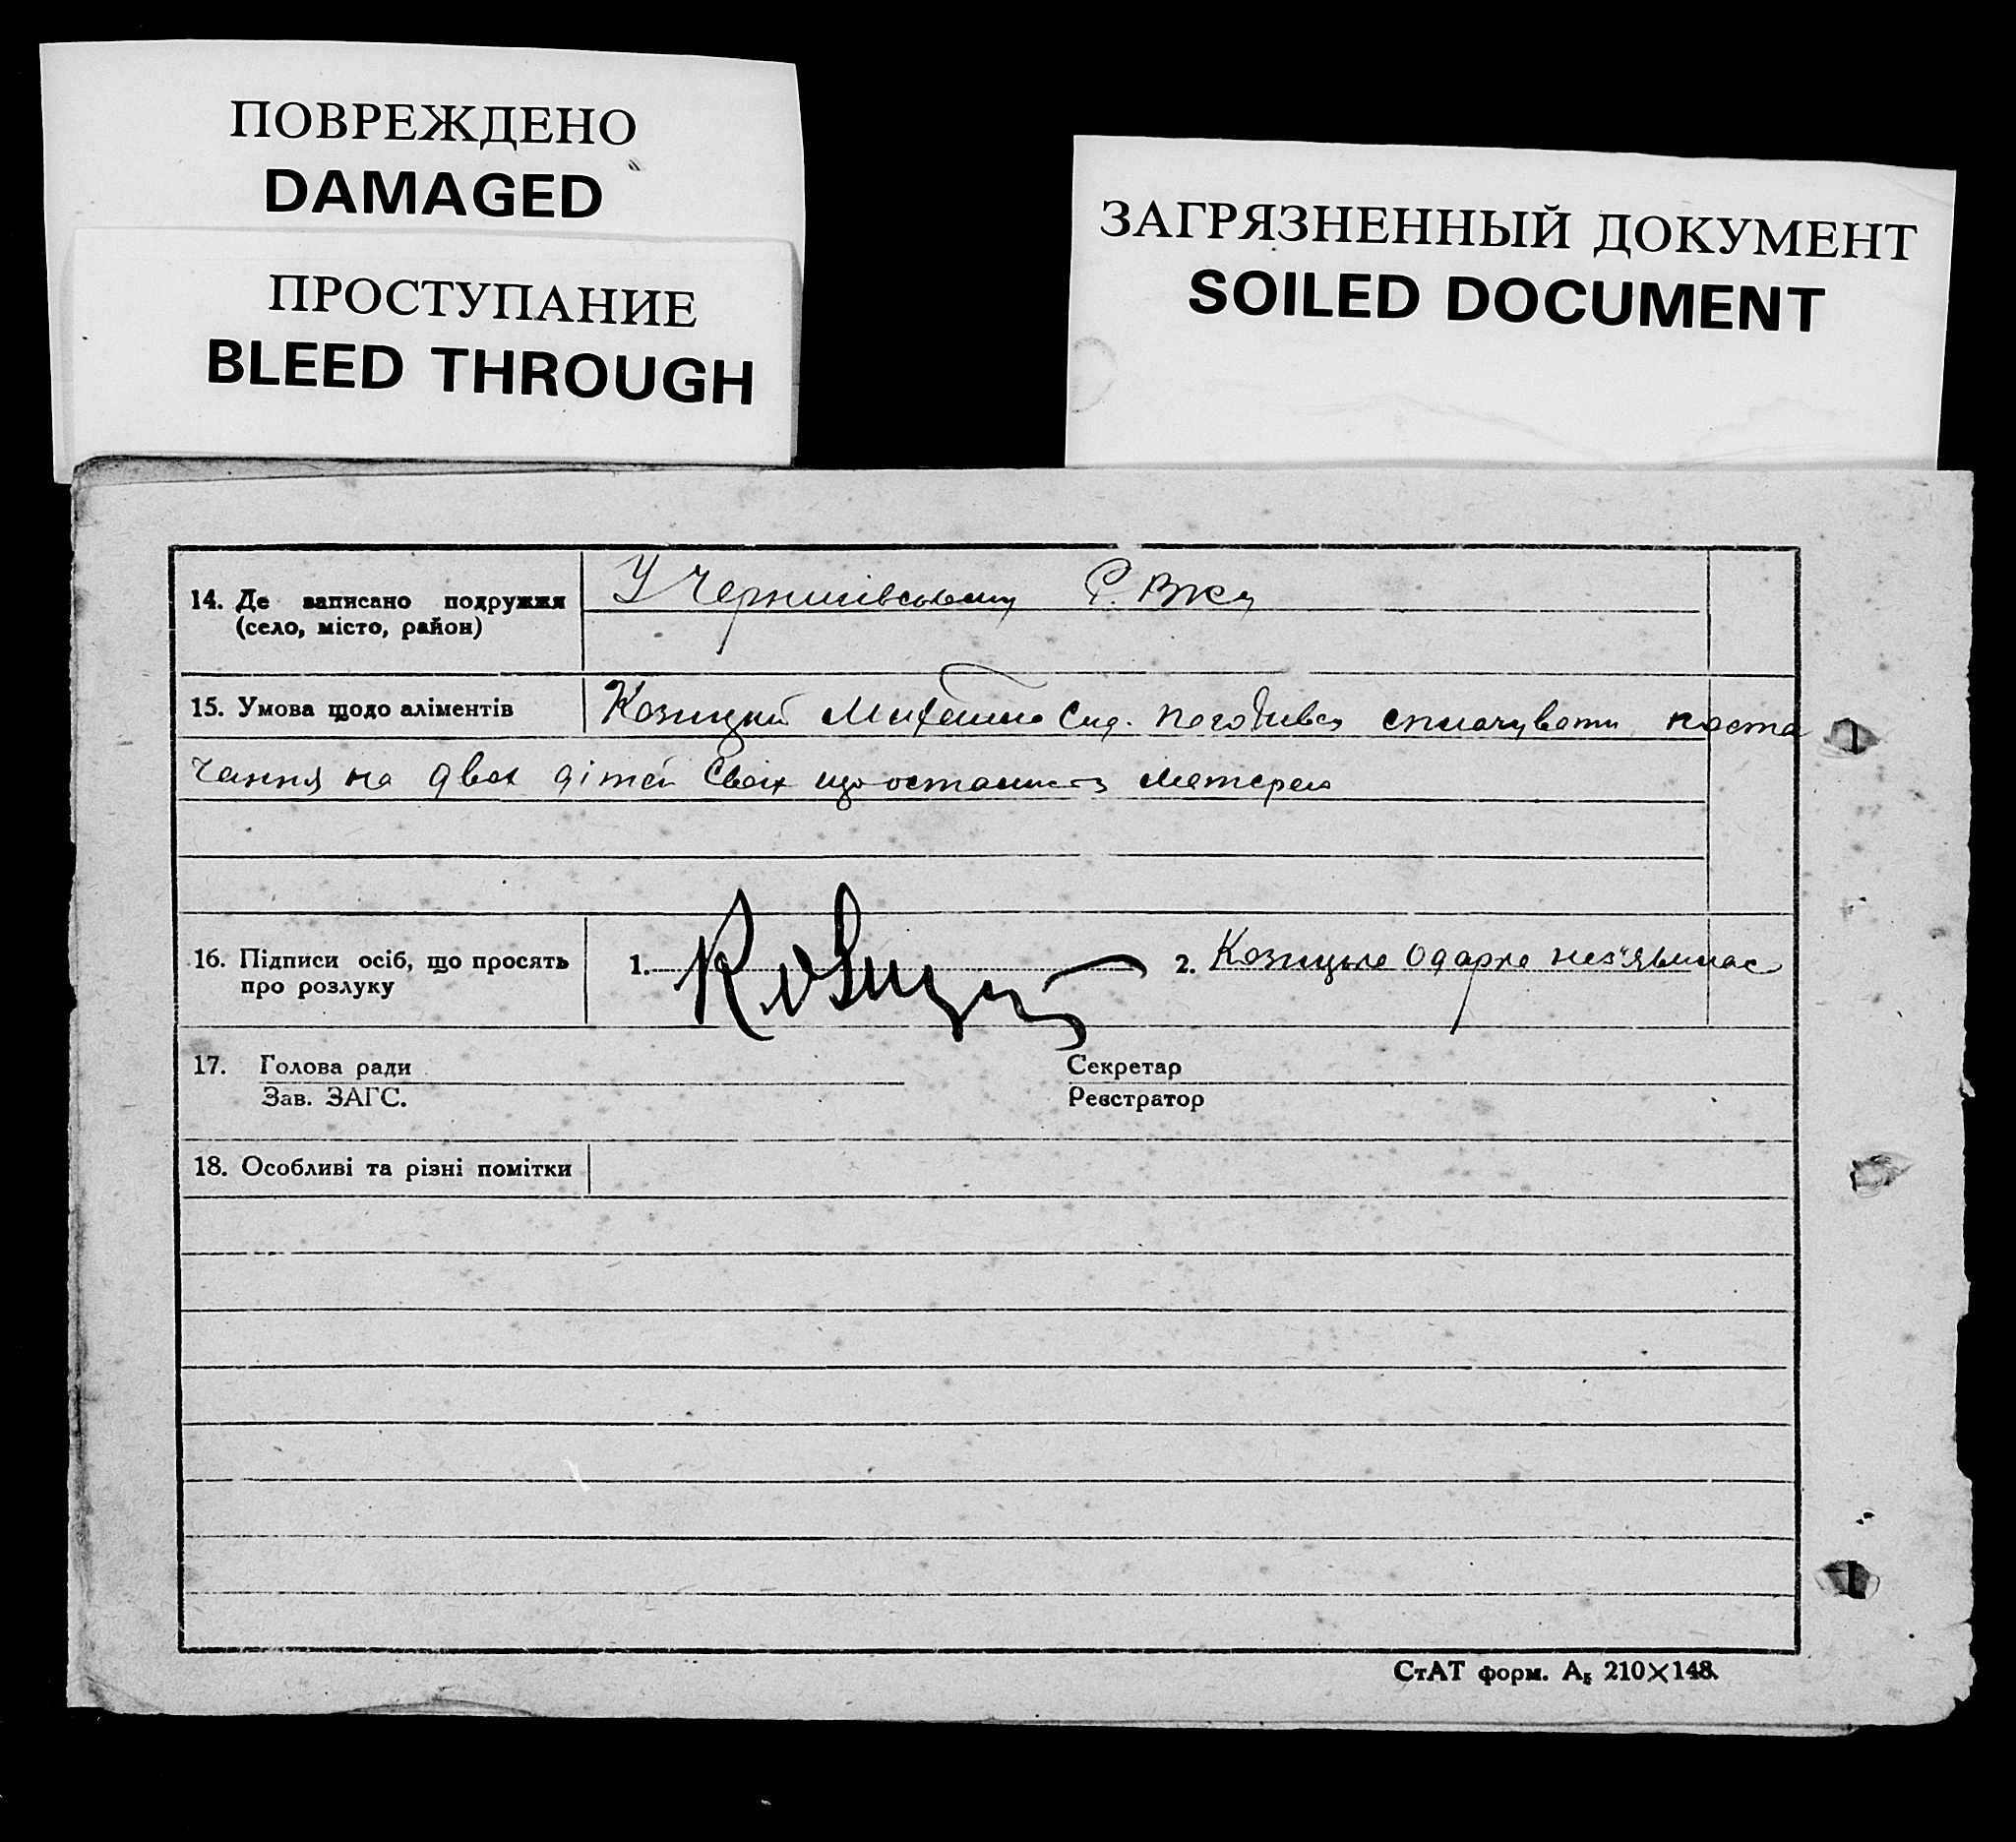 ПОВРЕЖДЕНО
DAMAGED
ПРОСТУПАНИЕ
BLEED THROUGH
ЗАГРЯЗНЕННЫЙ ДОКУМЕНТ
SOILED DOCUMENT
14. Де записано подружжя
(село, місто, район)
У Чернигівському Р.ВКу
15. Умова щодо аліментів
Козицкий Михайло Сид. погодився сплачувати поста
чання на двох дітей своїх що остались з матерею
16. Підписи осіб, що просять
про розлуку
1.
2. Козицька Одарка нез'явилас
17. Голова ради
Зав. ЗАГС.
Секретар
Реєстратор
18. Особливі та різні помітки
СтАТ форм. А5 210×148.